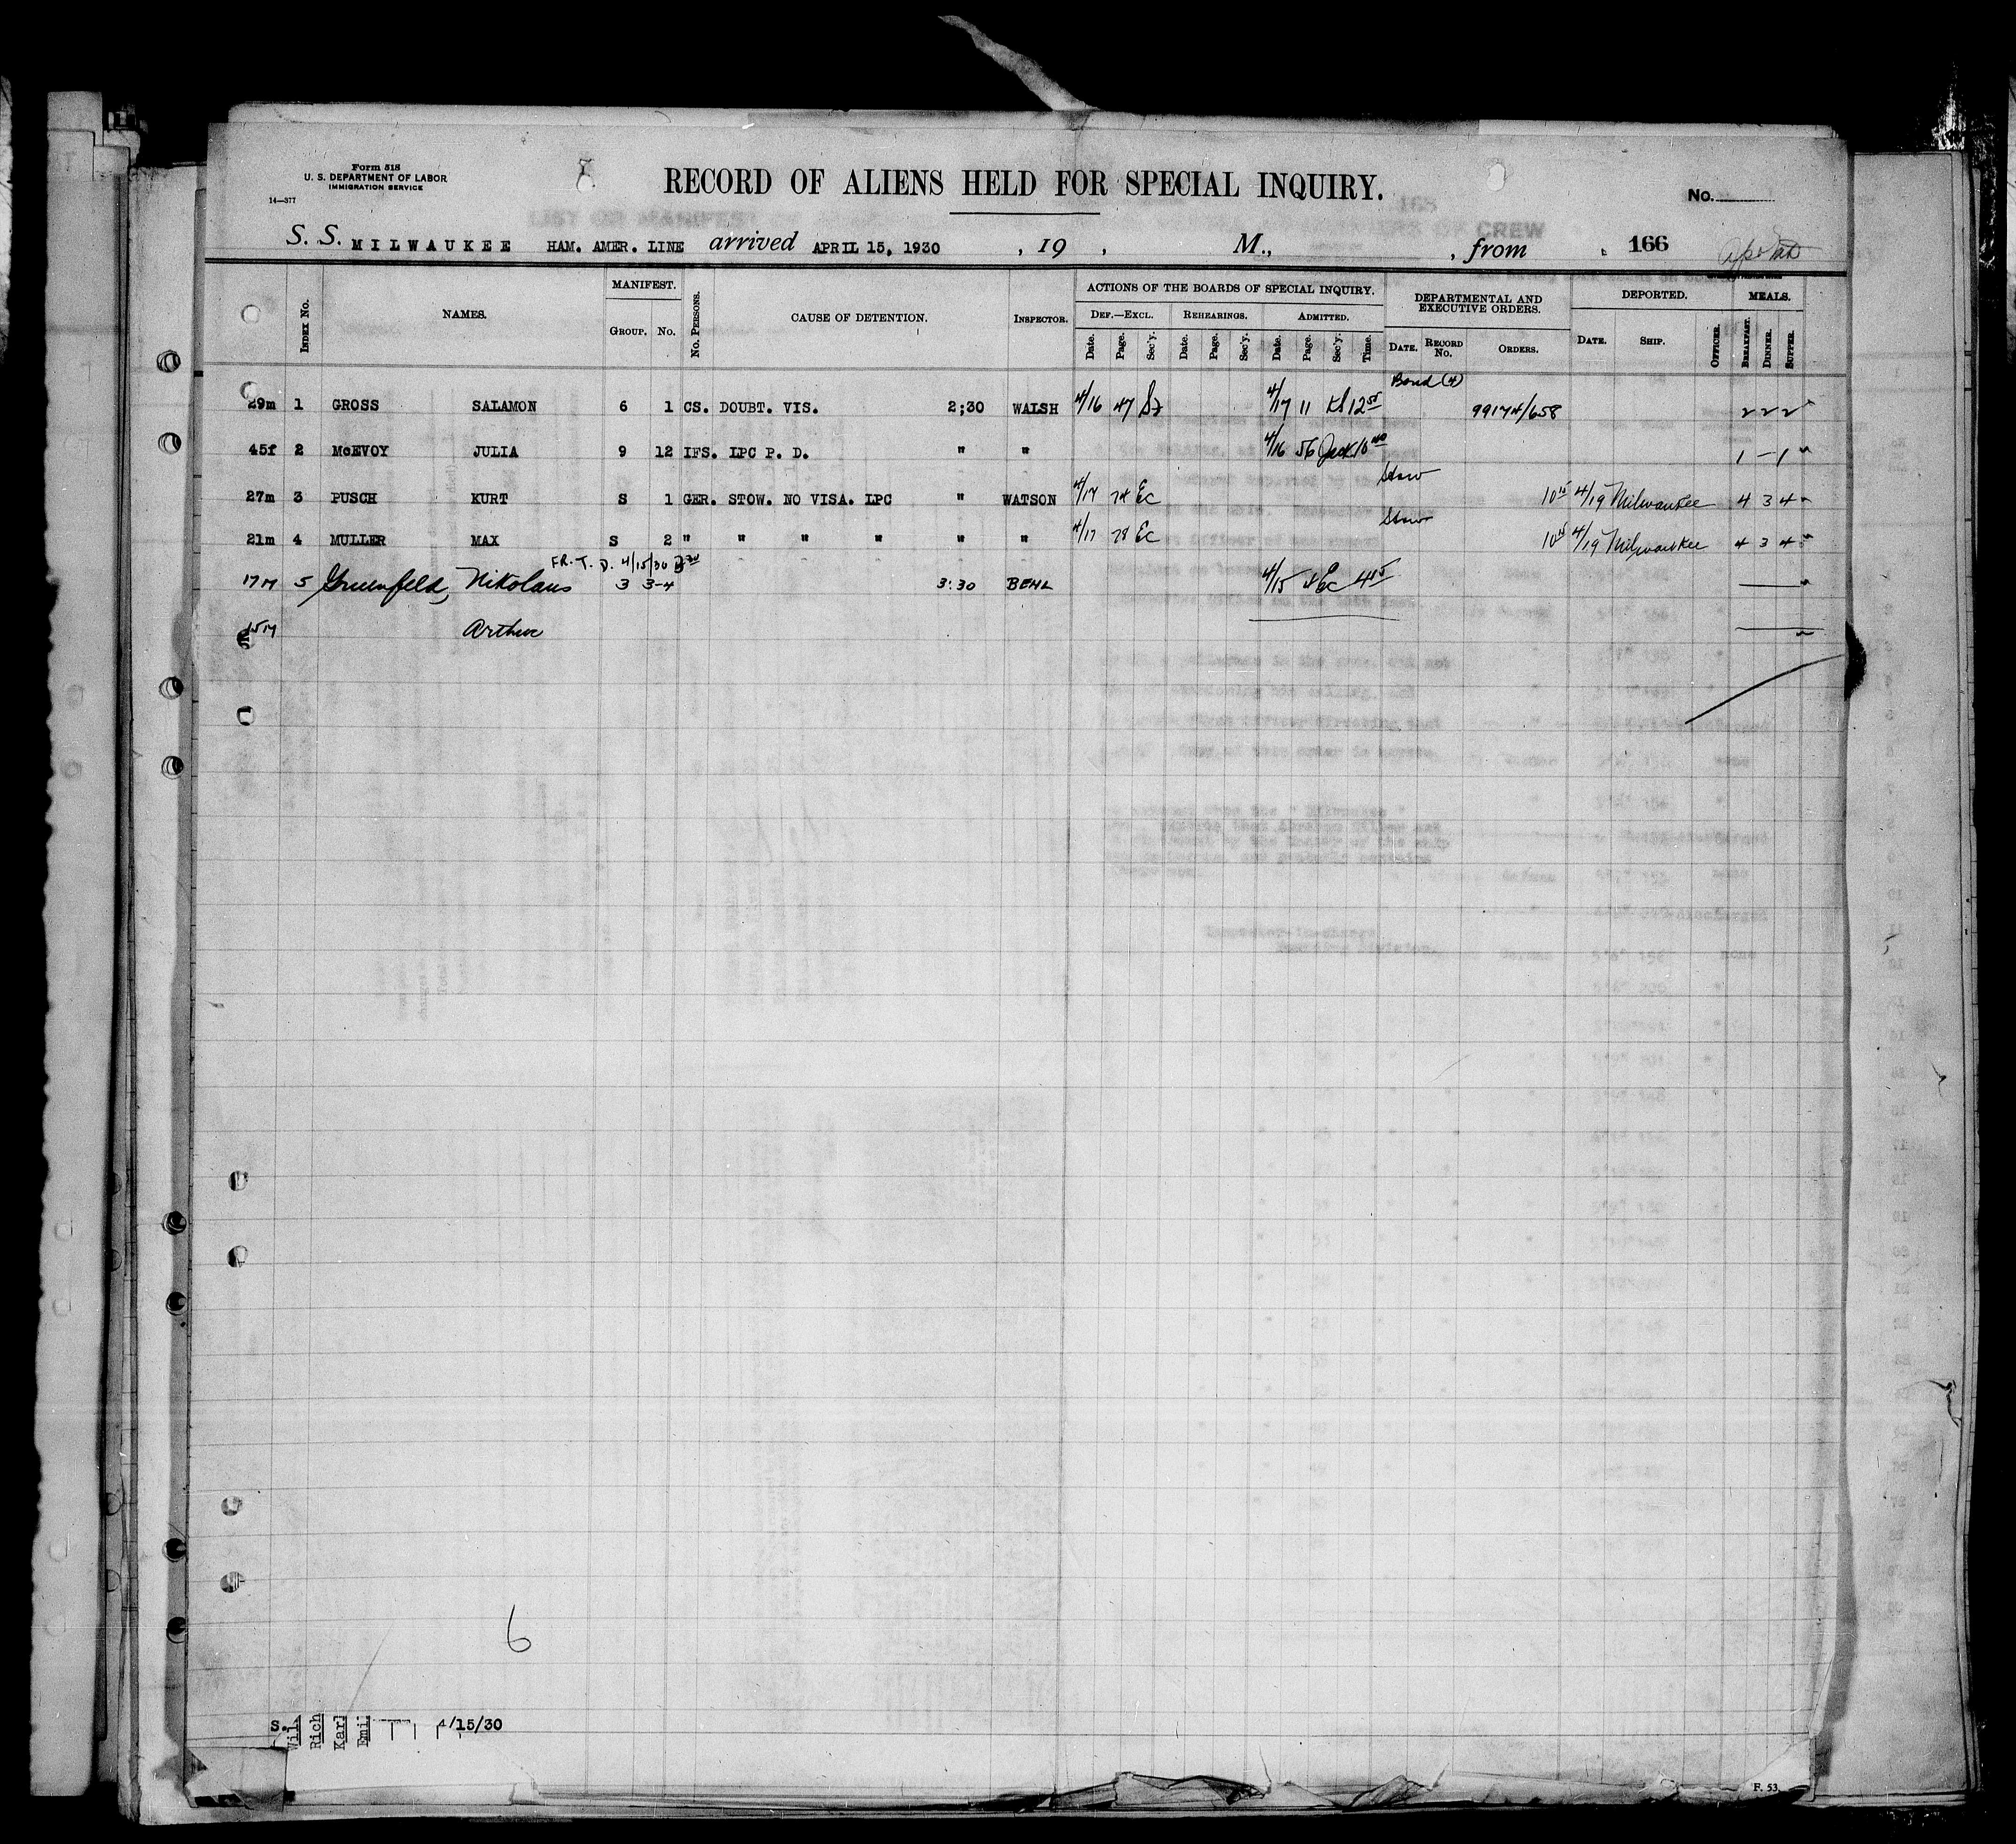 Form 518
U. S. DEPARTMENT OF LABOR
IMMIGRATION SERVICE
14—377
RECORD OF ALIENS HELD FOR SPECIAL INQUIRY.
No.
S. S. MILWAUKEE HAM. AMER. LINE arrived APRIL 15, 1930 , 19 , M., , from 166
INDEX No. NAMES. MANIFEST. GROUP. No. No. PERSONS. CAUSE OF DETENTION. INSPECTOR.
ACTIONS OF THE BOARDS OF SPECIAL INQUIRY. DEF.—EXCL. REHEARINGS. ADMITTED.
Date. Page. Sec'y. Date. Page. Sec'y. Date. Page. Sec'y. Time.
DEPARTMENTAL AND EXECUTIVE ORDERS. DATE. RECORD No. ORDERS.
DEPORTED. DATE. SHIP. OFFICER.
MEALS. BREAKFAST. DINNER. SUPPER.
Bond (4)
29m 1 GROSS SALAMON 6 1 CS. DOUBT. VIS. 2;30 WALSH 4/16 47 4/17 11 KS 12 55 99174/658 2 2 2
45f 2 McEVOY JULIA 9 12 IFS. LPC P. D. " " 4/16 56 10 1 – 1
Stow
27m 3 PUSCH KURT S 1 GER. STOW. NO VISA. LPC " WATSON 4/17 78 EC 10 15 4/19 Milwaukee 4 3 4
Stow
21m 4 MULLER MAX S 2 " " " " " " 4/17 78 EC 10 15 4/19 Milwaukee 4 3 4
FR. T. D. 4/15/30
17m 5 Gruenfeld, Nikolaus 3 3-4 3:30 BEHL 4/15 EC 4 15
15m Arthur
6
S.
Wil
Rich
Karl
Emil
4/15/30
F. 53